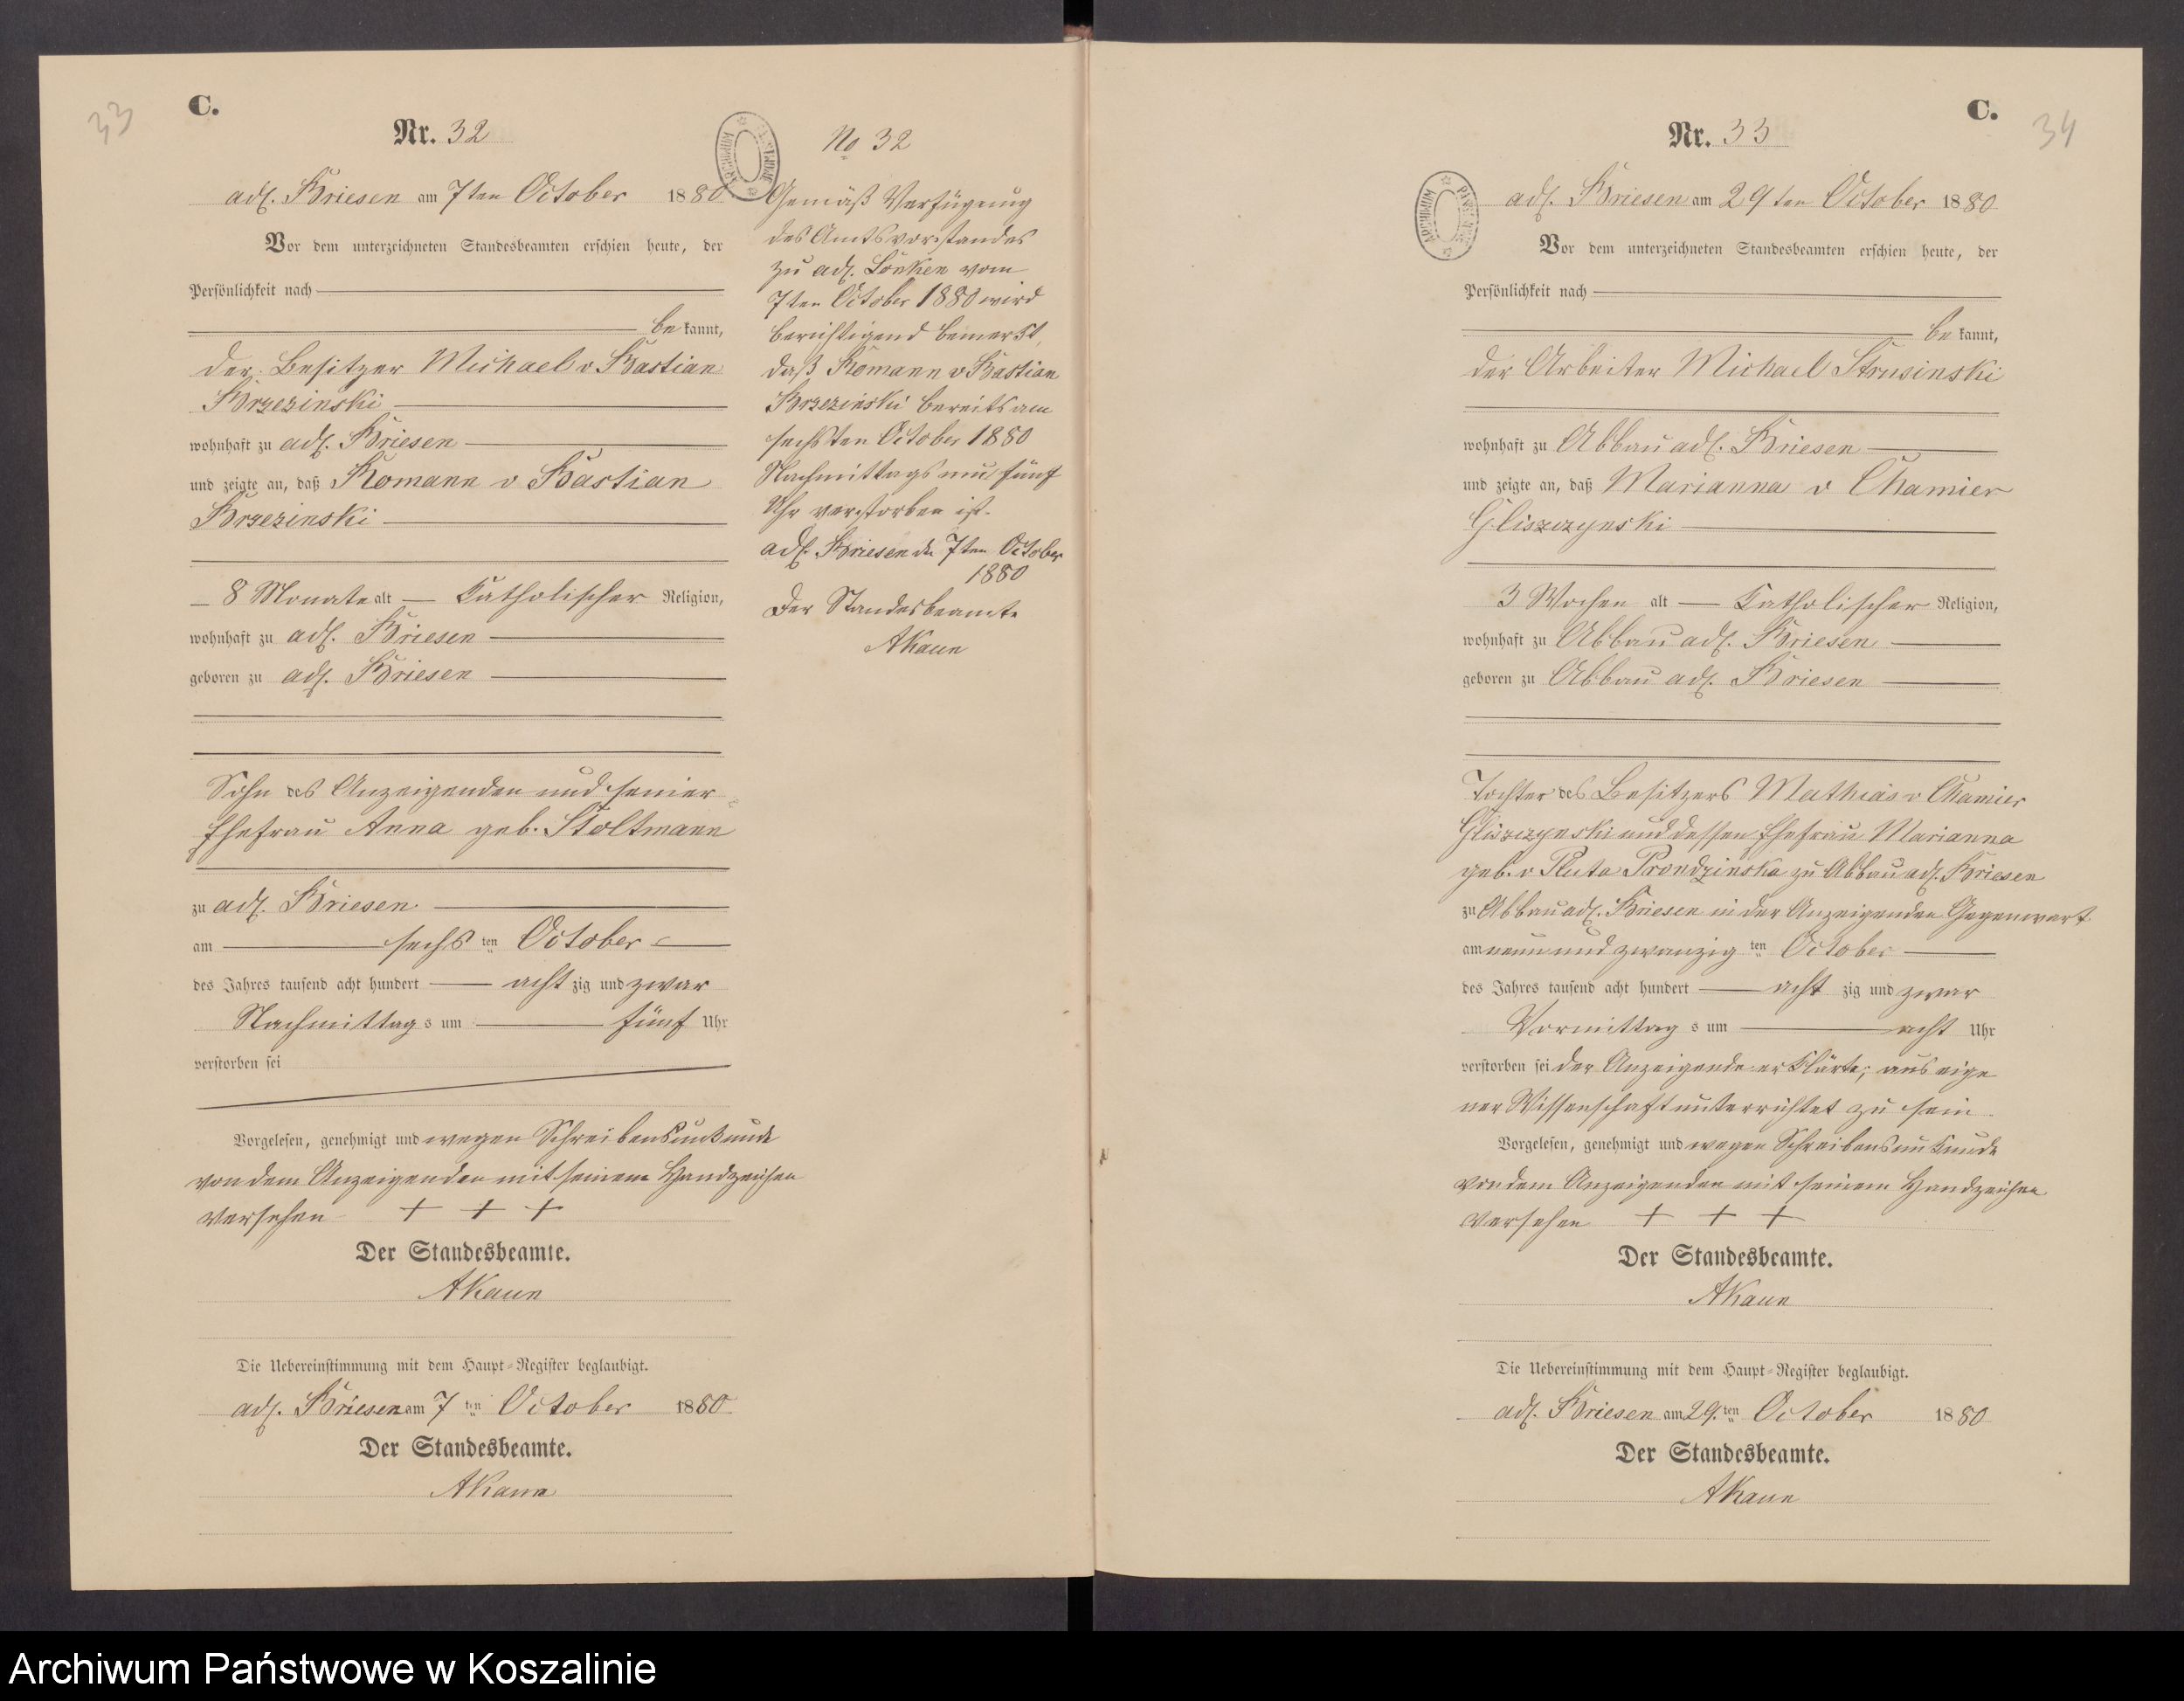 33
C.
Nr. 32
adl. Briesen am 7ten October 1880
Vor dem unterzeichneten Standesbeamten erschien heute, der
Persönlichkeit nach
be kannt,
der Besitzer Michael v Bastian
Brzezinski
wohnhaft zu adl. Briesen
und zeigte an, daß Romann v Bastian
Brzezinski
8 Monate alt Katholischer Religion,
wohnhaft zu adl. Briesen
geboren zu adl. Briesen
Sohn des Anzeigenden und seiner
Ehefrau Anna geb. Stoltmann
zu adl. Briesen
am sechs ten October
des Jahres tausend acht hundert acht zig und zwar
Nachmittag s um fünf Uhr
verstorben sei
Vorgelesen, genehmigt und wegen Schreibensunkunde
von dem Anzeigenden mit seinem Handzeichen
versehen + + +
Der Standesbeamte.
AKaun
Die Uebereinstimmung mit dem Haupt-Register beglaubigt.
adl. Briesen am 7 ten October 1880
Der Standesbeamte.
AKaun
No 32
Gemäß Verfügung
des Amtsvorstandes
zu adl. Lonken vom
7ten October 1880 wird
berichtigend bemerkt,
daß Romann v Bastian
Brzezinski bereits am
sechsten October 1880
Nachmittags um fünf
Uhr verstorben ist.
adl. Briesen den 7ten October
1880
Der Standesbeamte
AKaun
ARCHIWUM PAŃSTWOWE
C.
34
Nr. 33
ARCHIWUM PAŃSTWOWE
adl. Briesen am 29ten October 1880
Vor dem unterzeichneten Standesbeamten erschien heute, der
Persönlichkeit nach
be kannt,
der Arbeiter Michael Strusinski
wohnhaft zu Abbau adl. Briesen
und zeigte an, daß Marianna v Chamier
Gliszczynski
3 Wochen alt Katholischer Religion,
wohnhaft zu Abbau adl. Briesen
geboren zu Abbau adl. Briesen
Tochter des Besitzers Mathias v Chamier
Gliszczynski und dessen Ehefrau Marianna
geb. v Pluta Prondzinska zu Abbau adl. Briesen
zu Abbau adl. Briesen in der Anzeigenden Gegenwart
am neun und zwanzig ten October
des Jahres tausend acht hundert acht zig und zwar
Vormittag s um acht Uhr
verstorben sei der Anzeigende erklärte, aus eige
ner Wissenschaft unterrichtet zu sein
Vorgelesen, genehmigt und wegen Schreibensunkunde
von dem Anzeigenden mit seinem Handzeichen
versehen + + +
Der Standesbeamte.
AKaun
Die Uebereinstimmung mit dem Haupt-Register beglaubigt.
adl. Briesen am 29. ten October 1880
Der Standesbeamte.
AKaun
Archiwum Państwowe w Koszalinie